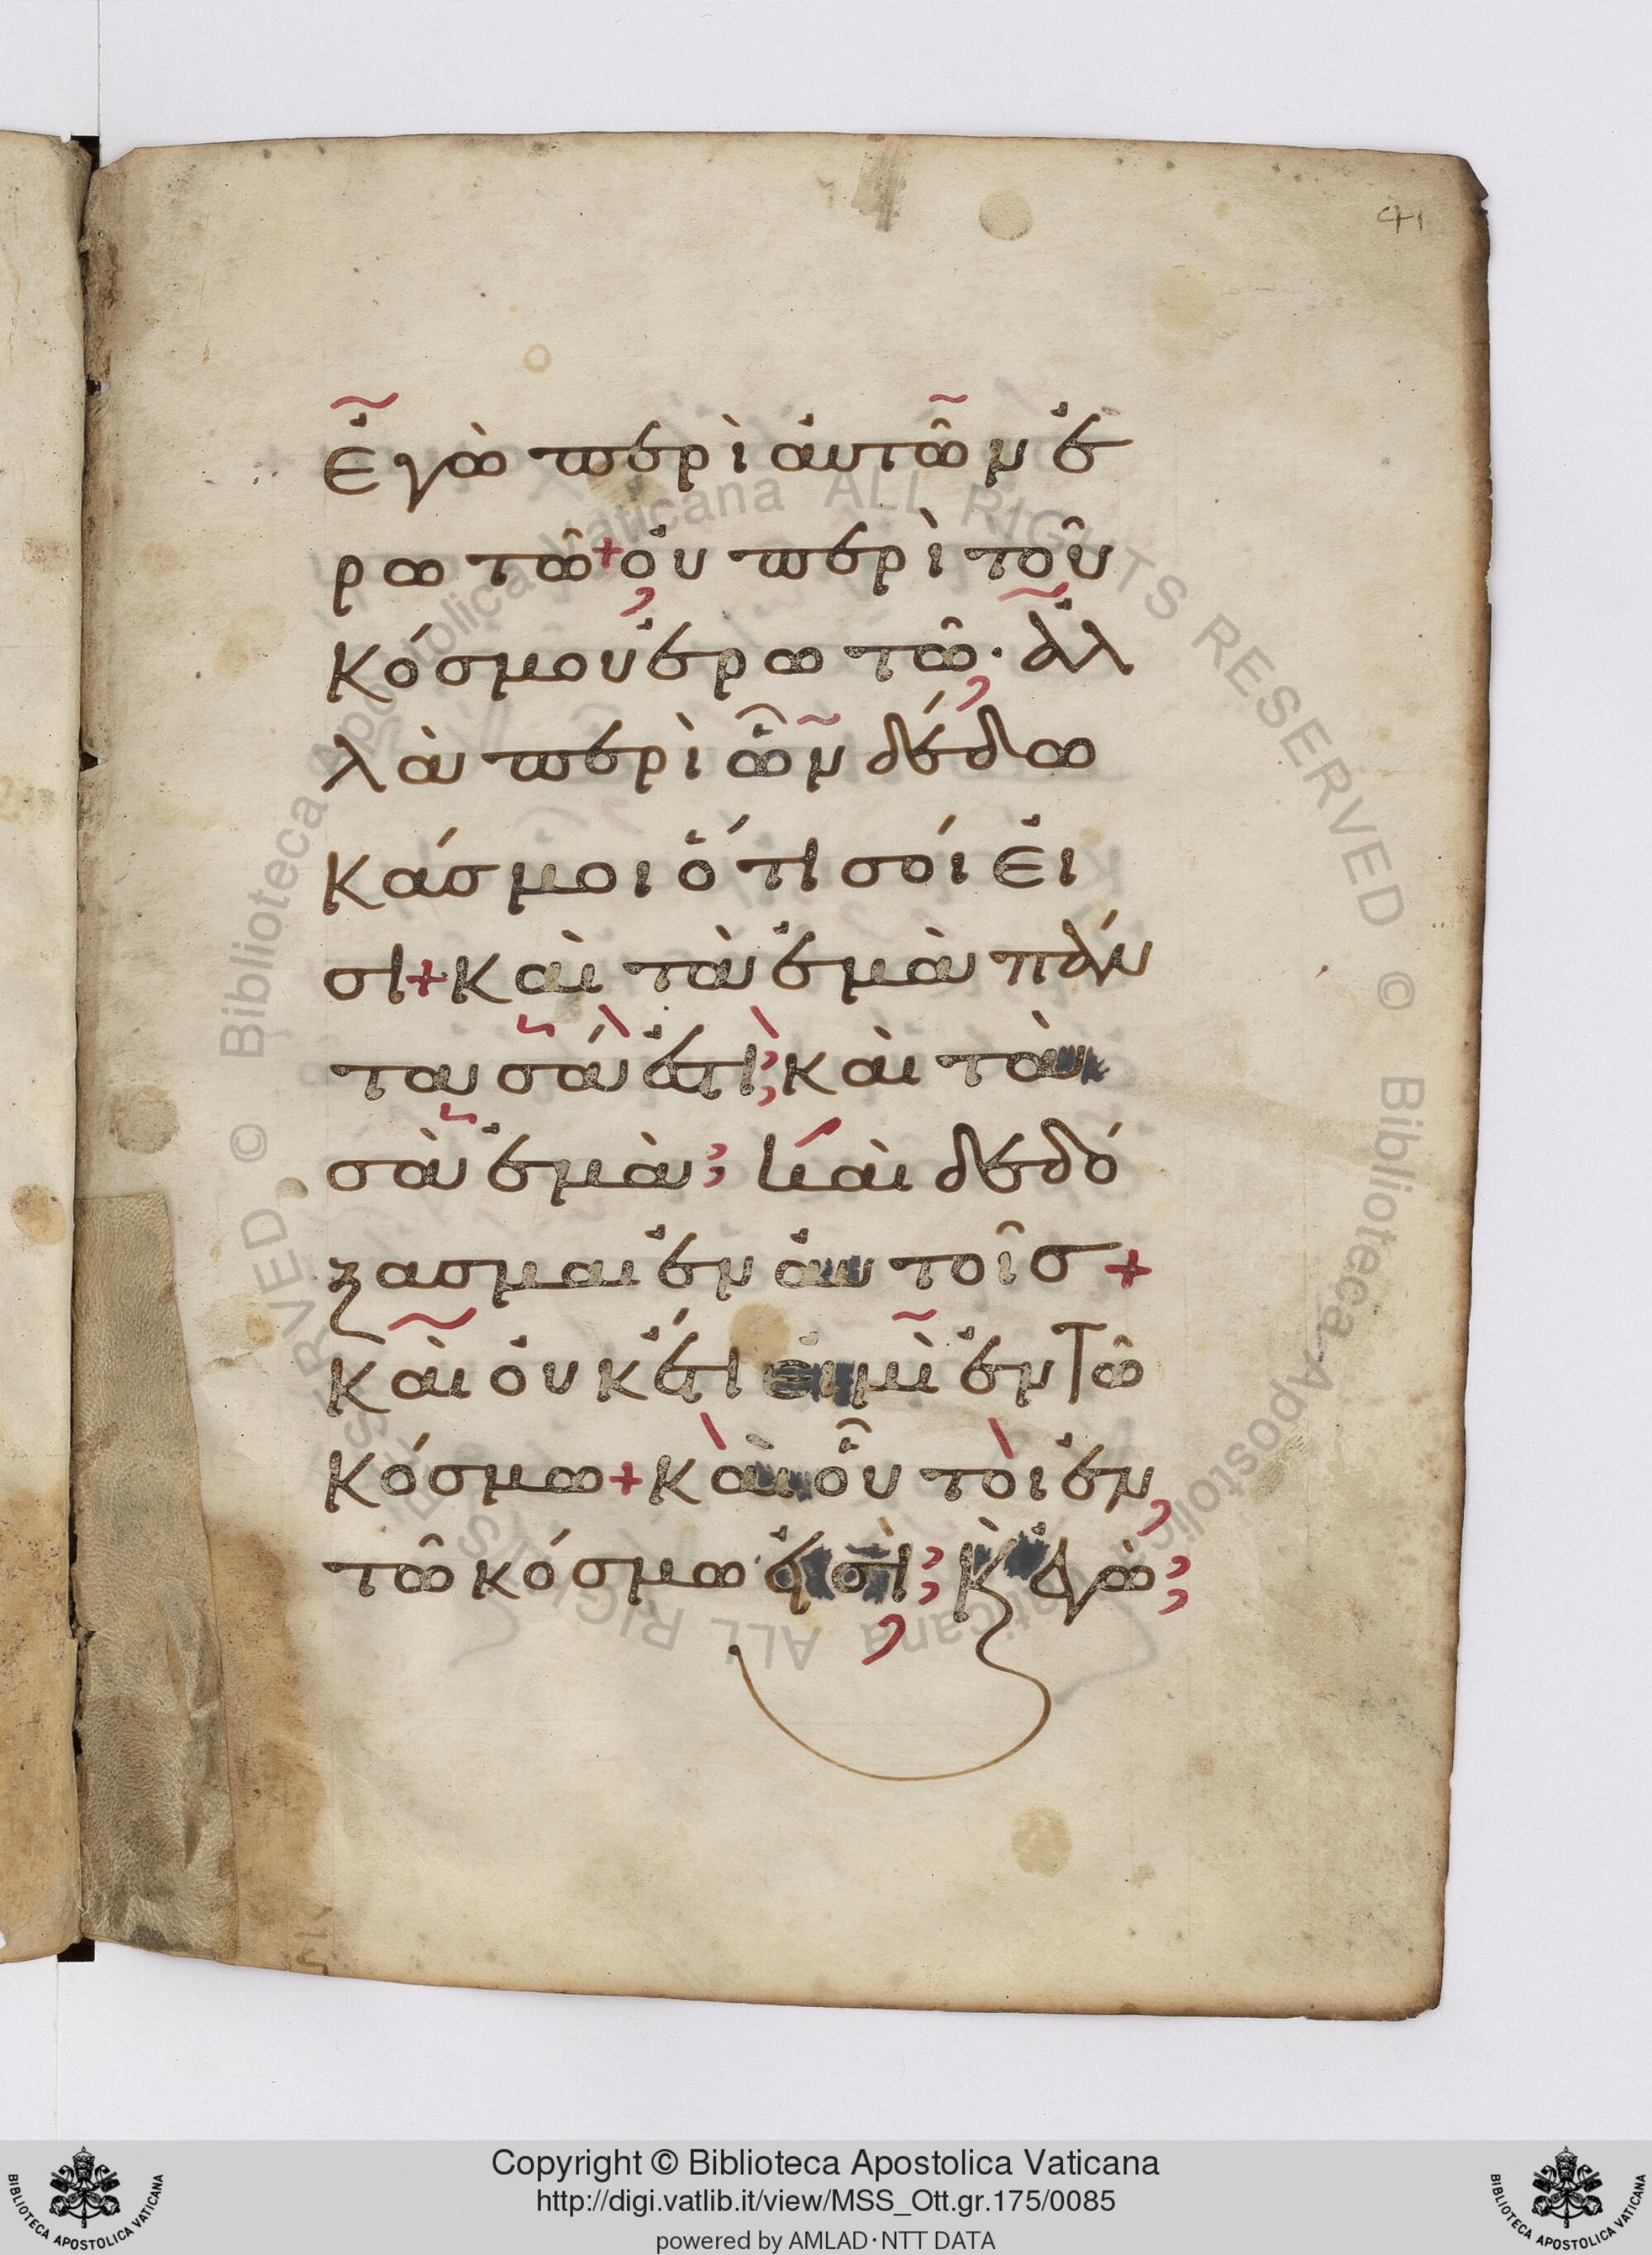 41
Ἐγὼ περὶ ἀυτῶν ἐ
ρωτῶ + ὀυ περὶ τοῦ
κόσμου ἐρωτῶ · ἀλ
λὰ περὶ ὧν δέδω
κάσ μοι ὅτι σοί ἐι
σι + καὶ τὰ ἐμὰ πάν
τα σά ἐστι ; καὶ τὰ
σὰ ἐμὰ ; καὶ δεδό
ξασμαι ἐν ἀυτοῖσ +
καὶ ὀυκέτι ἐιμὶ ἐν τῶ
κόσμω + καὶ οὗτοι ἐν
τῶ κόσμω ἐισὶ ; κ̀ ἐγὼ ;
Copyright © Biblioteca Apostolica Vaticana
http://digi.vatlib.it/view/MSS_Ott.gr.175/0085
powered by AMLAD·NTT DATA
BIBLIOTECA APOSTOLICA VATICANA
BIBLIOTECA APOSTOLICA VATICANA
© Biblioteca Apostolica Vaticana ALL RIGHTS RESERVED © Biblioteca Apostolica Vaticana ALL RIGHTS RESERVED